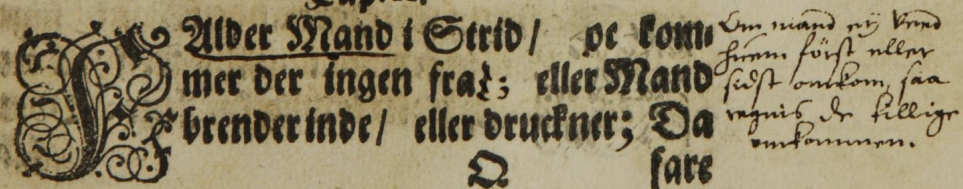 FAlder Mand i Strid / oc kom-
mer der ingen fra; eller Mand
brender inde / eller druckner; Da
O. fare
Om mand ey veed
huem först eller
sidst omkom, saa
regnis de tillige
omkommen.